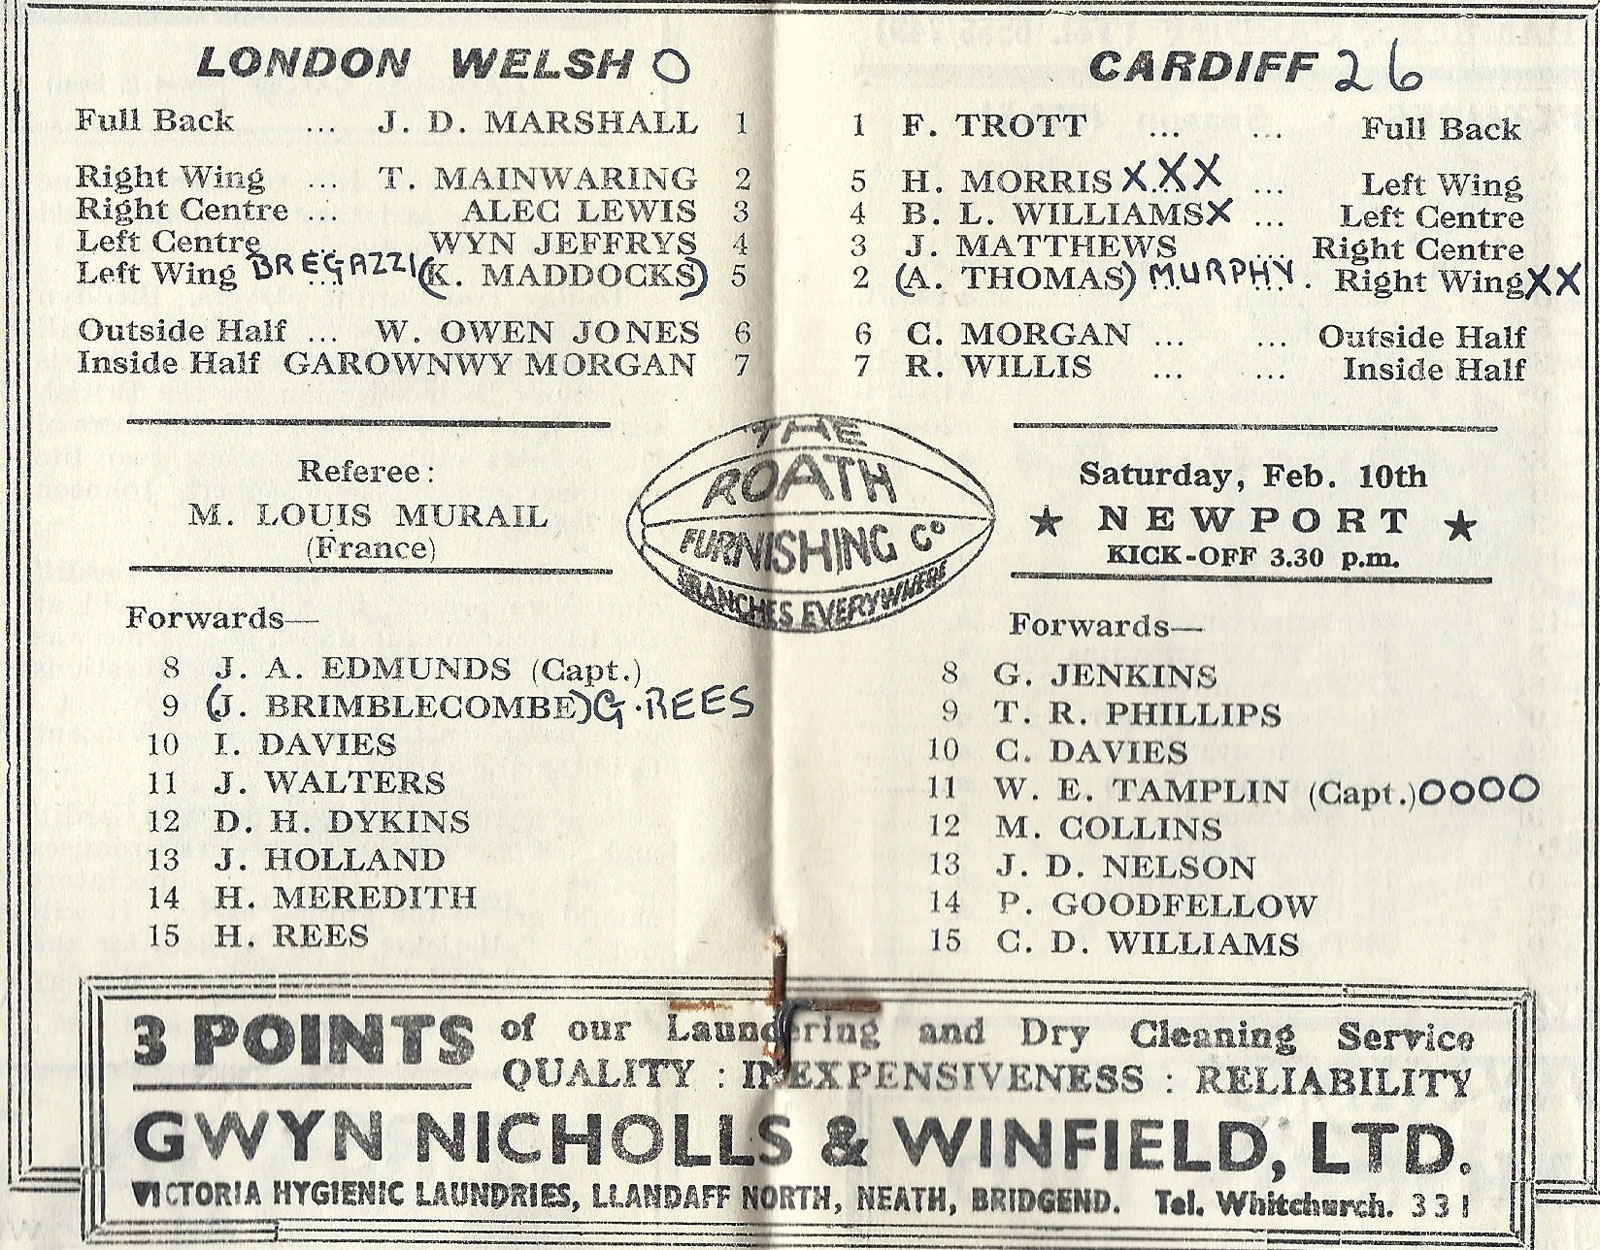 LONDON WELSH 0
Full Back ... J. D. MARSHALL 1
Right Wing ... T. MAINWARING 2
Right Centre ... ALEC LEWIS 3
Left Centre ... WYN JEFFRYS 4
Left Wing BREGAZZI (K. MADDOCKS) 5
Outside Half ... W. OWEN JONES 6
Inside Half GAROWNWY MORGAN 7
Referee:
M. LOUIS MURAIL
(France)
Forwards—
8 J. A. EDMUNDS (Capt.)
9 (J. BRIMBLECOMBE) G. REES
10 I. DAVIES
11 J. WALTERS
12 D. H. DYKINS
13 J. HOLLAND
14 H. MEREDITH
15 H. REES
THE
ROATH
FURNISHING Co
BRANCHES EVERYWHERE
CARDIFF 26
1 F. TROTT ... ... Full Back
5 H. MORRIS XXX ... Left Wing
4 B. L. WILLIAMS X ... Left Centre
3 J. MATTHEWS ... Right Centre
2 (A. THOMAS) MURPHY . Right Wing XX
6 C. MORGAN ... ... Outside Half
7 R. WILLIS ... ... Inside Half
Saturday, Feb. 10th
★ NEWPORT ★
KICK-OFF 3.30 p.m.
Forwards—
8 G. JENKINS
9 T. R. PHILLIPS
10 C. DAVIES
11 W. E. TAMPLIN (Capt.) OOOO
12 M. COLLINS
13 J. D. NELSON
14 P. GOODFELLOW
15 C. D. WILLIAMS
3 POINTS of our Laundering and Dry Cleaning Service
QUALITY : INEXPENSIVENESS : RELIABILITY
GWYN NICHOLLS & WINFIELD, LTD.
VICTORIA HYGIENIC LAUNDRIES, LLANDAFF NORTH, NEATH, BRIDGEND. Tel. Whitchurch. 331